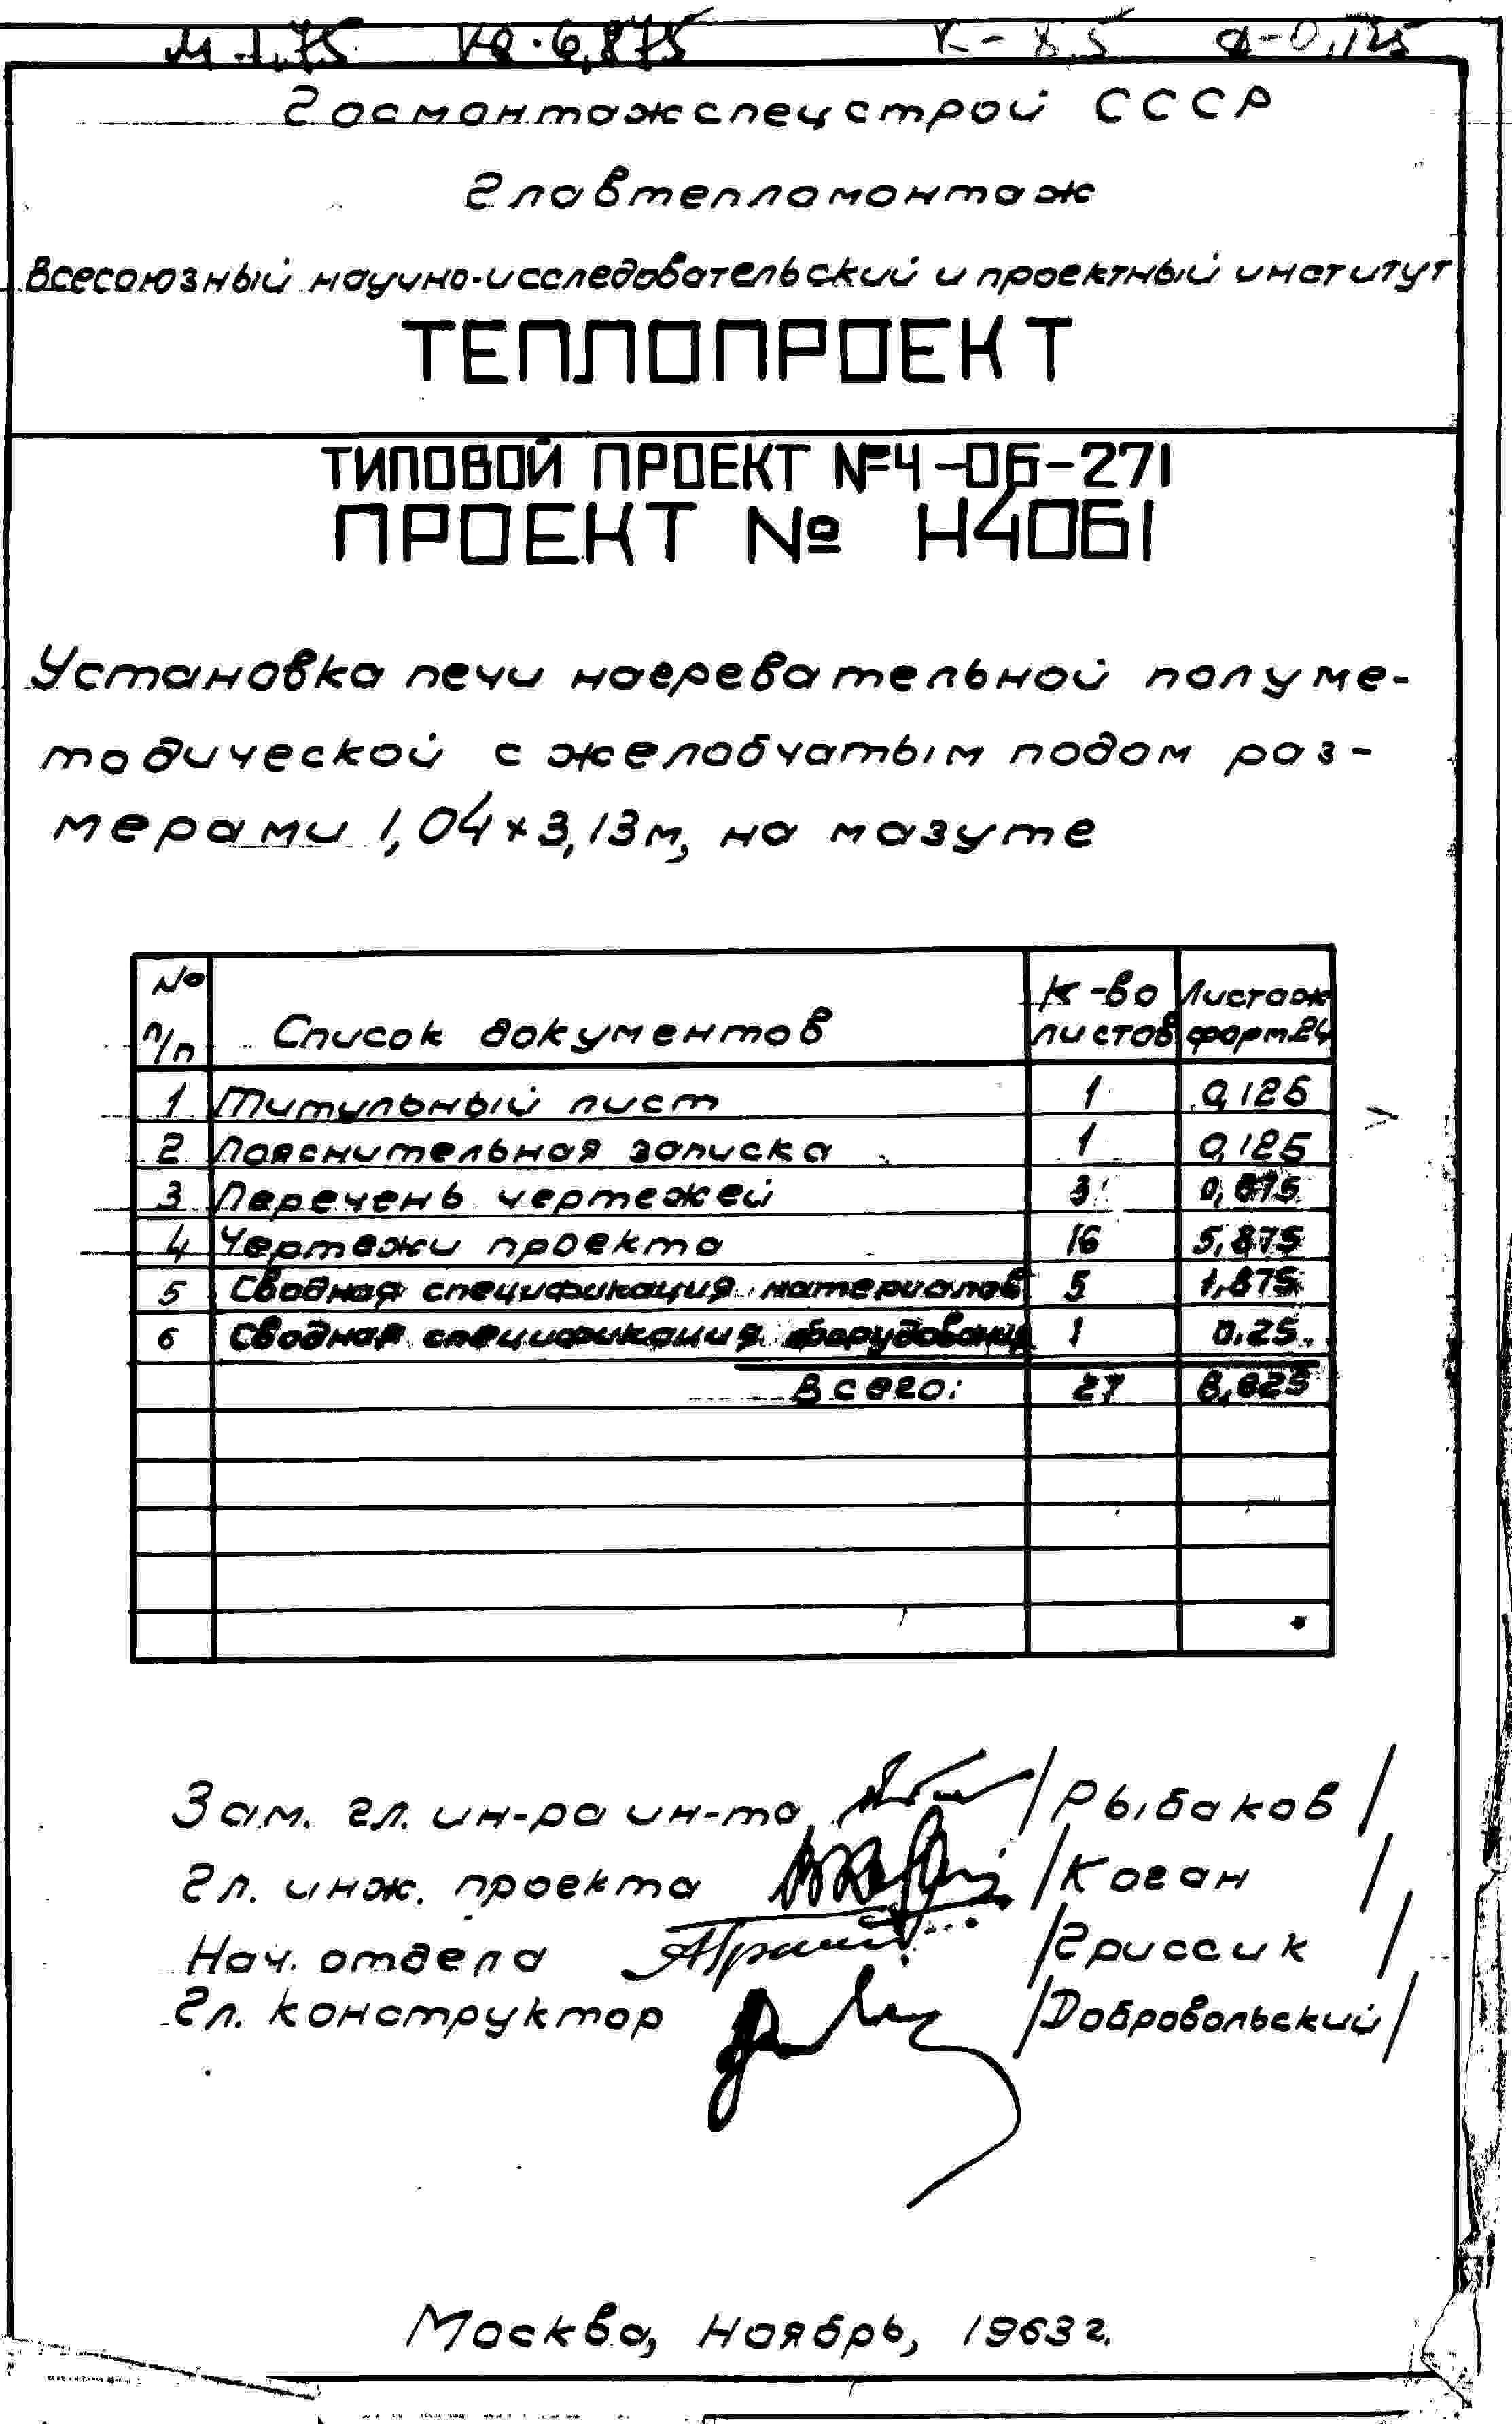 М-1,75 К2-6,875 К-8,5 а-0,125
Госмонтажспецстрой СССР
Главтепломонтаж
Всесоюзный научно-исследовательский и проектный институт
ТЕПЛОПРОЕКТ
ТИПОВОЙ ПРОЕКТ №4-06-271
ПРОЕКТ № Н4061
Установка печи нагревательной полуме-
тодической с желобчатым подом раз-
мерами 1,04×3,13м, на мазуте
№ п/п Список документов К-во листов Листаж форм.24
1 Титульный лист 1 0,125
2 Пояснительная записка 1 0,125
3 Перечень чертежей 3 0,375
4 Чертежи проекта 16 5,875
5 Сводная спецификация материалов 5 1,875
6 Сводная спецификация оборудования 1 0,25
Всего: 27 8,625
Зам. гл. ин-ра ин-та /Рыбаков/
Гл. инж. проекта /Коган/
Нач. отдела /Гриссик/
Гл. конструктор /Добровольский/
Москва, Ноябрь, 1963г.